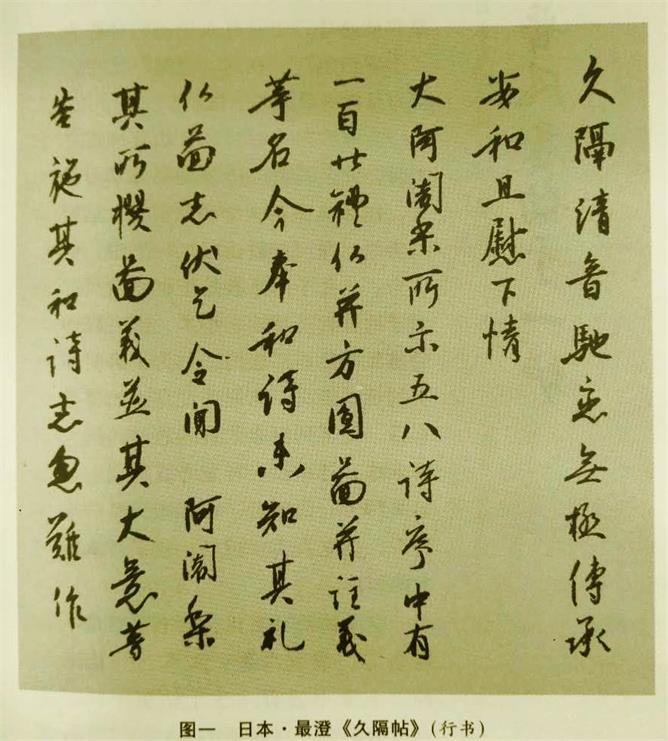 久隔清音馳恋無極傳承
安和且慰下情
大阿闍梨所示五八詩序中有
一百廿禮仏并方圓圖并註義
等名今奉和詩未知其礼
仏圖志伏乞令聞 阿闍梨
其所撰圖義並其大意等
告施其和詩志忽難作
图一 日本·最澄《久隔帖》(行书)